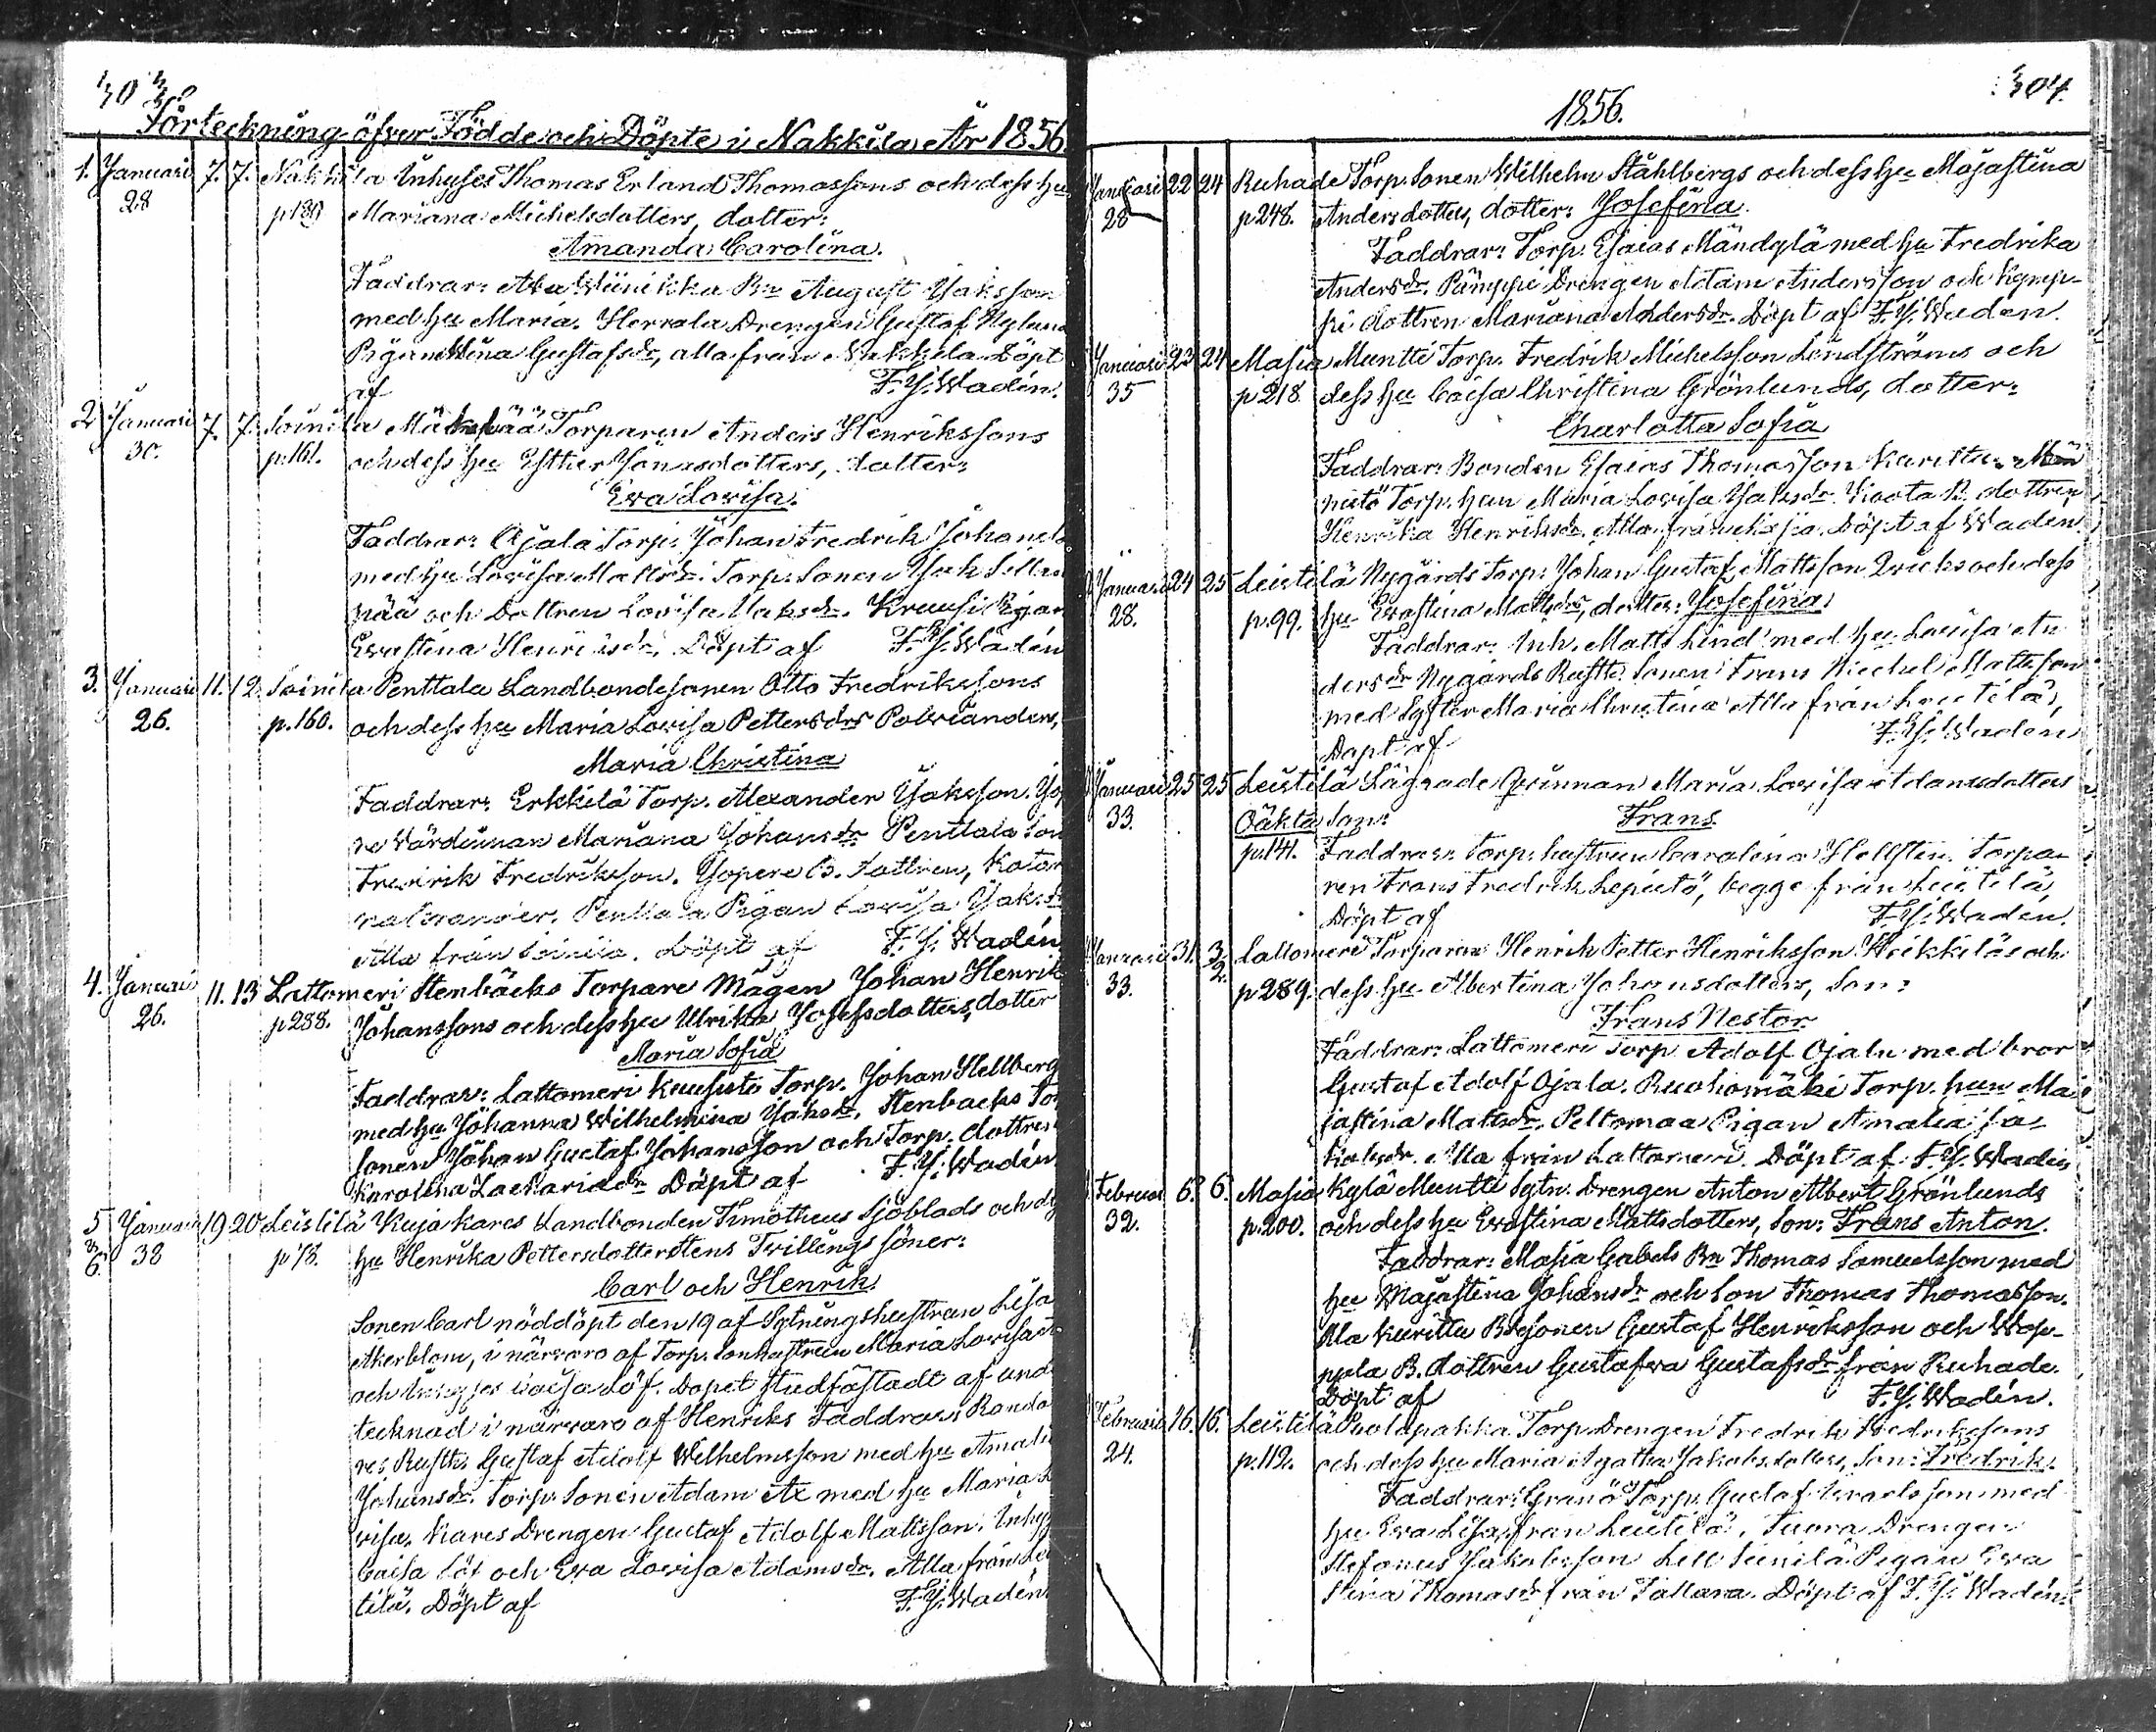 Förteckning öfver Födde och Döpte i Nakkila År 1856
1. Januari 7. 7. Nakkila Inhyses Thomas Erland Thomassons och dess hu
28 p 139 Mariana Michelsdotters, dotter:
Amanda Carolina.
Faddrar: Bn August Jaksson
med hu Maria. Herrala Drengen Gustaf Nylund
Pigan Gustafsdr, alla från Nakkila Döpt
af F. J. Wadén.
2 Januari 7. 7. Soinila Torparen Anders Henrikssons
30. p. 161. och dess hu Esther Jonasdotters, dotter:
Eva Lovisa.
Faddrar: Ojala Torp. Johan Fredrik
med hu Lovisa Mattsdr. Torp. Sonen
pää och Dottren Lovisa Jaksdr. Krausi Pigan
Evastina Henriksdr. Döpt af F. J. Wadén
3. Januari 11. 12. Soinila Penttala Landbondesonen Otto Fredrikssons
26. p. 160. och dess hu Maria Lovisa Pettersdrs Polvianders,
Maria Christina
Faddrar: Erkkilä Torp. Alexander Jaksson.
re Värdinnan Mariana Johansdr Penttala Son
Fredrik Fredriksson. B. dottren,
Penttala Pigan Lovisa Jaksdr
Alla från Soinila. Döpt af F. J. Wadén
4. Januari 11. 13 Lattomeri Stenbäcks Torpare Mågen Johan Henrik
26. p 288. Johanssons och dess hu Ulrika Josefsdotters, dotter
Maria Sofia
Faddrar: Lattomeri Kuusisto Torp. Johan Hellberg
med hu Johanna Wilhelmina Jaksdr. Stenbacks
Sonen Johan Gustaf Johansson och Torp. dottren
Karolina Döpt af F. J. Wadén
5 Januari 19 20 Leistilä Kujakares Landbonden Timotheus Sjöblads och
6. 38 p 78. hu Henrika Pettersdotter Stens Tvillings söner:
Carl och Henrik
Sonen Carl nöddöpt den 19 af Sytningshustrun Lisa
Åkerblom, i närvaro af Torp. Sonhustrun Maria Lovisa
och Caisa Löf. Döpet studfästadt af und
tecknad i närvaro af Henriks Faddrar:
res Rusth. Gustaf Adolf Wilhelmsson med hu
Johansdr. Torp. Sonen Adam Ax med hu Maria
visa. Kares Drengen Gustaf Adolf Mattsson.
Caisa Löf och Eva Lovisa Adamsdr. Alla från
tilä. Döpt af F. J. Wadén
304.
1856.
Januari 22 24 Ruhade Torp. Sonen Wilhelm Ståhlbergs och dess hu Majastina
28 p 248. Andersdotters, dotter: Josefina.
Faddrar: Torp. Esaias Mändylä med hu Fredrika
Andersdr. Drengen Adam Andersson och
pi dottren Mariana Andersdr. Döpt af F. J. Wadén.
Januari 23 24 Masia Muntti Torp. Fredrik Michelsson Lindströms och
35 p 218 dess hu Caisa Christina Grönlunds, dotter:
Charlotta Sofia
Faddrar: Bonden Esaias Thomasson
Torp. hun Maria Lovisa Jaksdr. dottren
Henrika Henriksdr. Alla från Masia. Döpt af Wadén.
Januari 24 25 Leistilä Nygårds Torp. Johan Gustaf Mattsson Qvicks och dess
28. p. 99. hu Evastina Mattsdrs, dotter: Josefina.
Faddrar: Inh. Matts Lind med hu Lovisa An
dersdr Nygårds Rusth. Sonen Frans Michel Mattsson
med Syster Maria Christina Alla från Leistilä,
Döpt af F. J. Wadén
Januari 25 25 Leistilä Lägrade Qvinnan Maria Lovisa Adamsdotters
33. Oäkta Son: Frans
p. 141. Faddrar: Torp. hustrun Carolina Hellsten. Torpa-
ren Frans Fredrik Lepistö, begge från Leistilä,
Döpt af F. J. Wadén.
Januari 31. 3/2. Lattomeri Torparen Henrik Petter Henriksson Heikkiläs och
33. p 289. dess hu Albertina Johansdotters, Son:
Frans Nestor
Faddrar: Lattomeri Torp Adolf Ojala med bror
Gustaf Adolf Ojala. Ruohomäki Torp. hun Ma
jastina Mattsdr. Peltomaa Pigan Amalia Ja-
kobsdr. Alla från Lattomeri. Döpt af F. J. Wadén
Februari 6. 6. Masia Kylä Muntti Sytn. Drengen Anton Albert Grönlunds
32. p. 200. och dess hu Evastina Mattsdotters, Son: Frans Anton.
Faddrar: Masia Gabels Bn Thomas Samuelsson med
hu Majastina Johansdr och Son Thomas Thomasson.
Ala Kuritta B. Sonen Gustaf Henriksson och
B. dottren Gustafva Gustafsdr från Ruhade.
Döpt af F. J. Wadén.
Februari 16. 16. Leistilä Torp. Drengen Fredrik Fredrikssons
24. p. 112. och dess hu Maria Agatha Jakobsdotters, Son: Fredrik.
Faddrar: Granö Torp. Gustaf Israelsson med
hu Eva Lisa från Leistilä. Tuora Drengen
Stefanus Jakobsson Pigan Eva
Stina Thomasdr från Tattara. Döpt af F. J. Wadén.